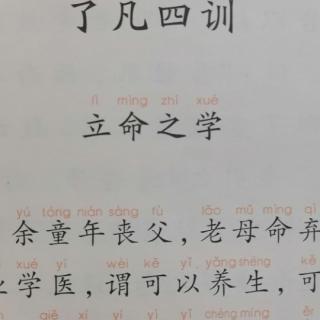 了凡四训
lì mìng zhī xué
立命之学
yú tóng nián sàng fù lǎo mǔ mìng qì
余童年丧父，老母命弃
xué yī wèi kě yǐ yǎng shēng kě
业学医，谓可以养生，可
xí yì yǐ chéng míng ěr